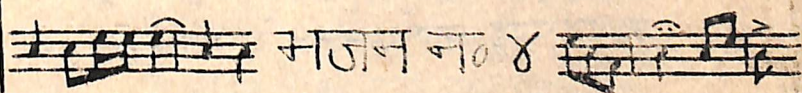 भजन न० ४